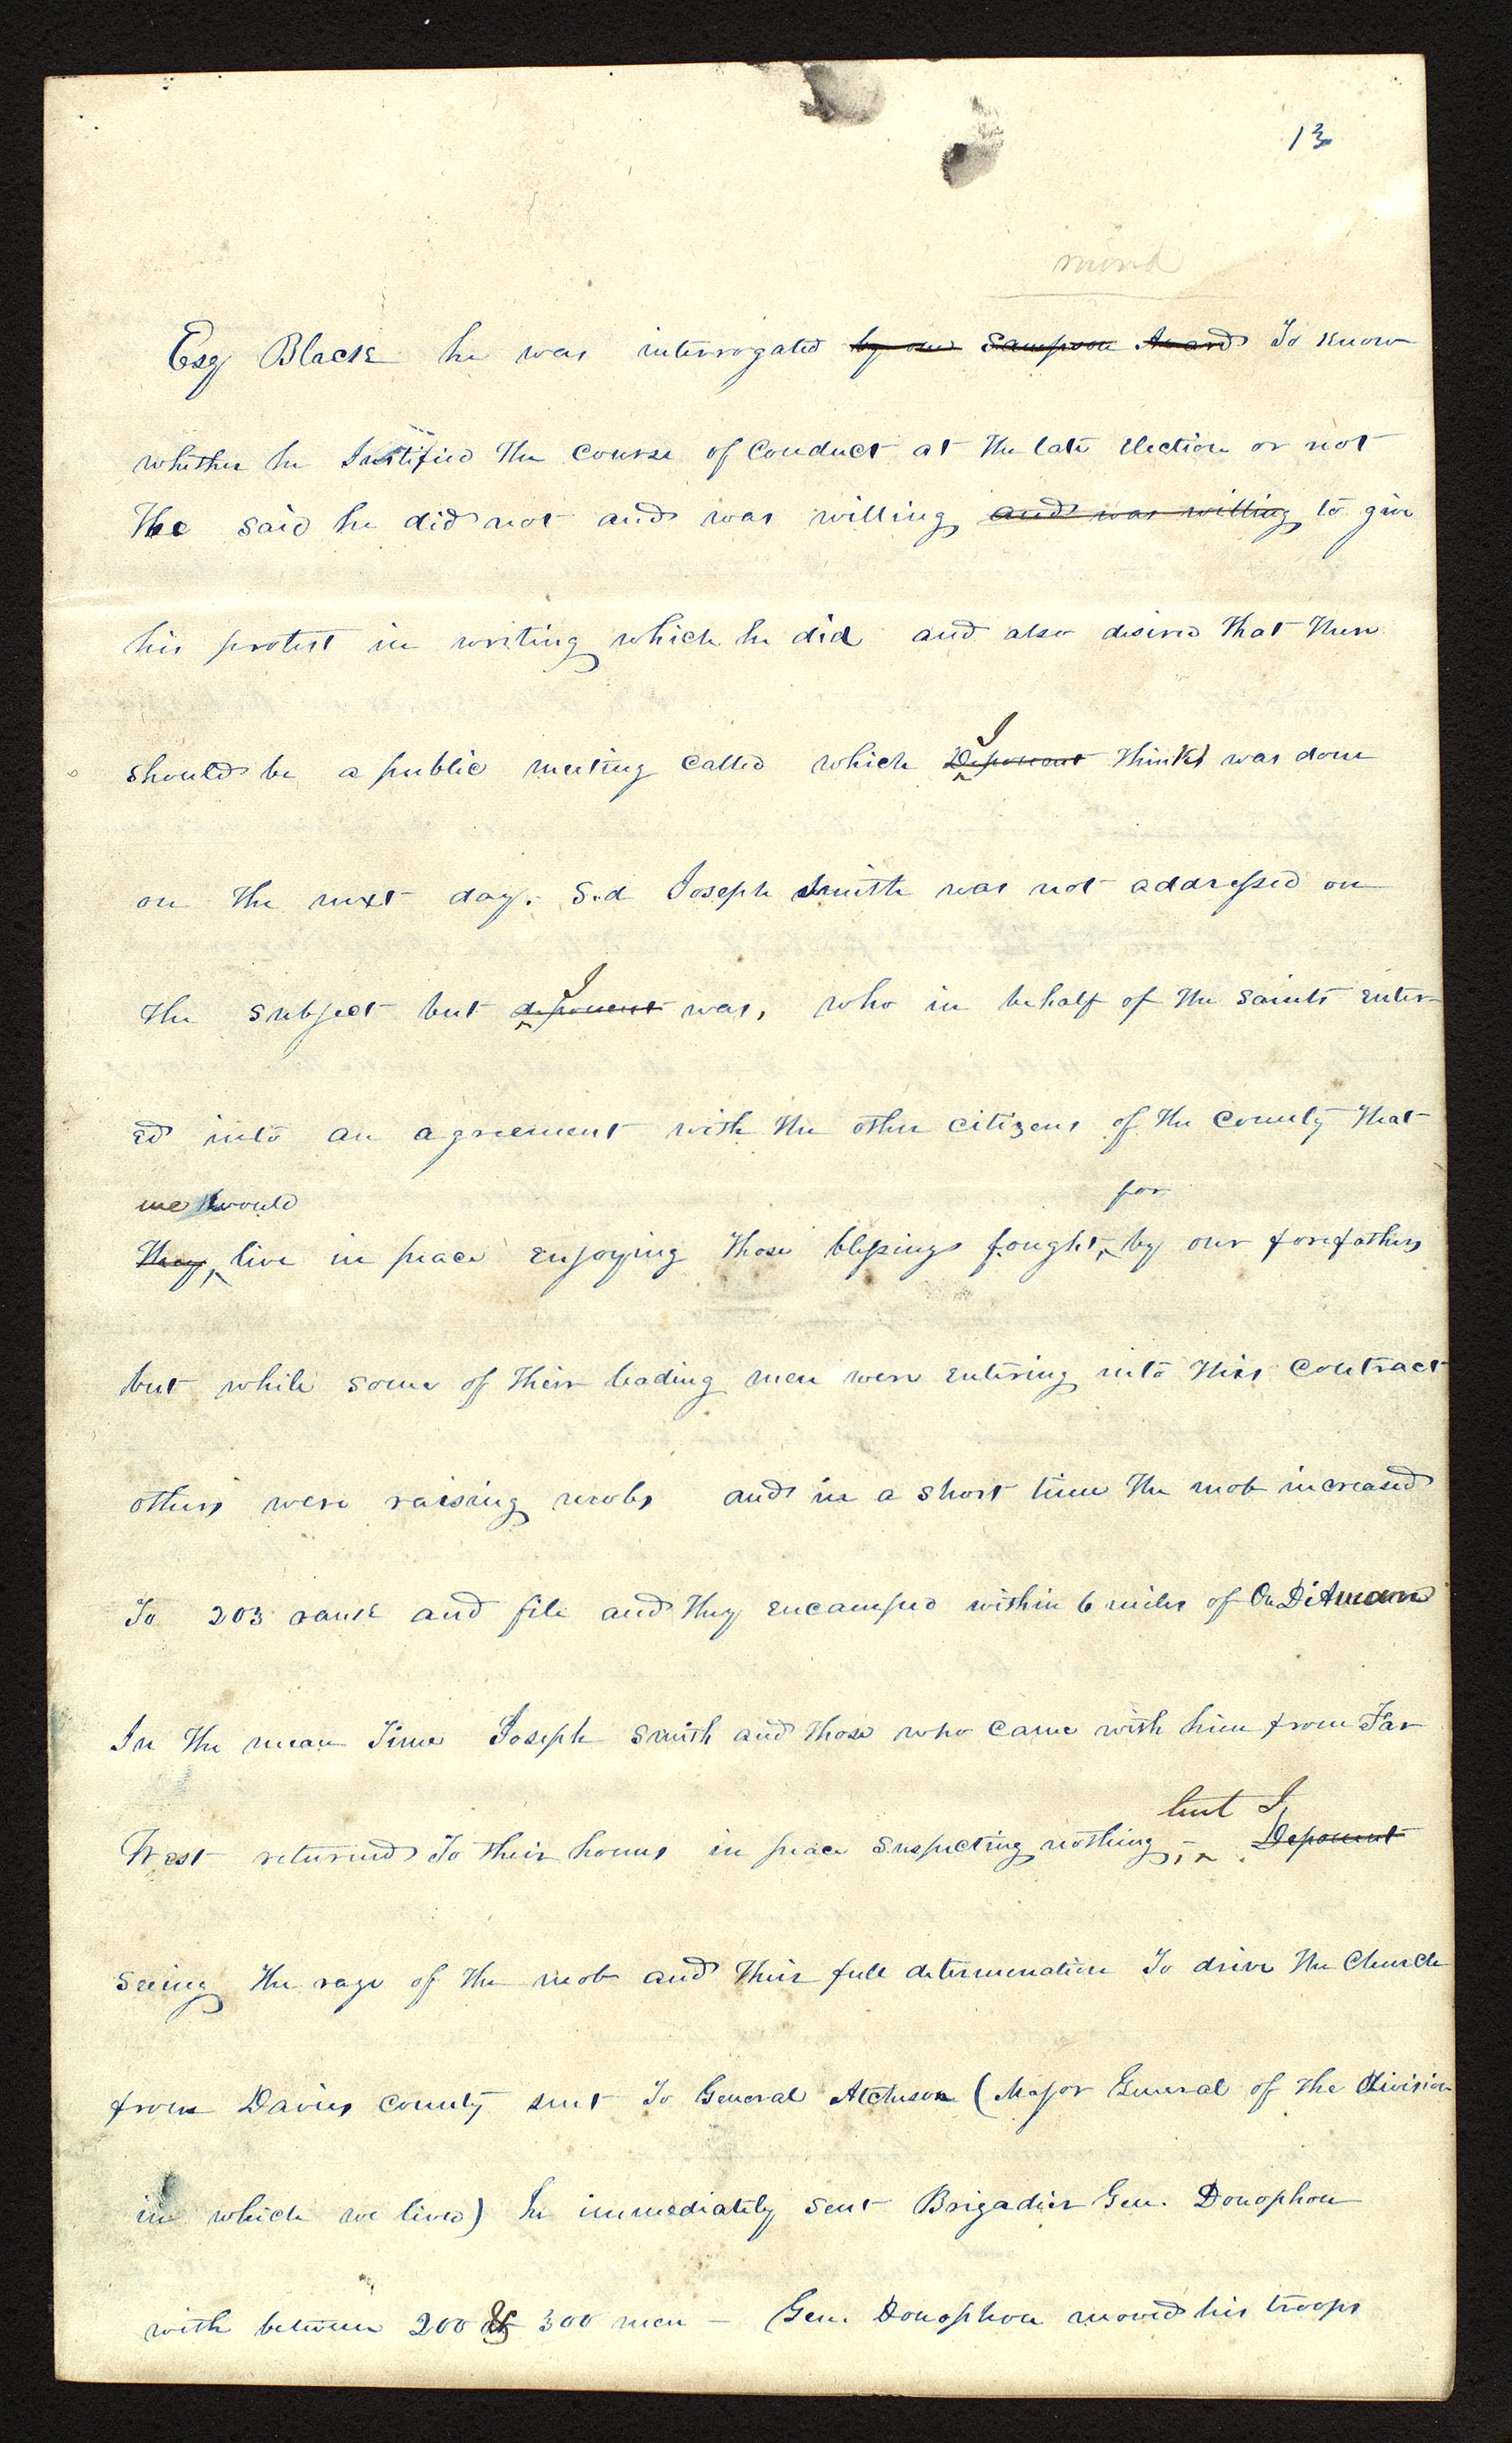 13
Esq Black he was interrogated by one Sampson Avard To know
whether he Justified the course of Conduct at the late Election or not
He said he did not and was willing and was willing to give
his protest in writing which he did and also desired that there
I
should be a public meeting called which Deponent thinks was done
on the next day. Sd Joseph Smith was not addressed on
I
the subject but deponent was, who in behalf of the saints enter
ed into an agreement with the other citizens of the County that
we would for
they live in peace enjoying those blessings fought by our forefathers
but while some of their leading men were entering into this contract
others were raising mobs and in a short time the mob increased
To 203 rank and file and they encamped within 6 miles of On DiAman
In the mean Time Joseph Smith and those who came with him from Far
but I
West returned To their homes in peace suspecting nothing, - Deponent
seeing the rage of the mob and their full determination To drive the Church
from Davies County sent To General Atchison (Major General of the division
in which we lived) he immediately sent Brigadier Gen. Donophon
with between 200 & 300 men — Gen. Donophon moved his troops